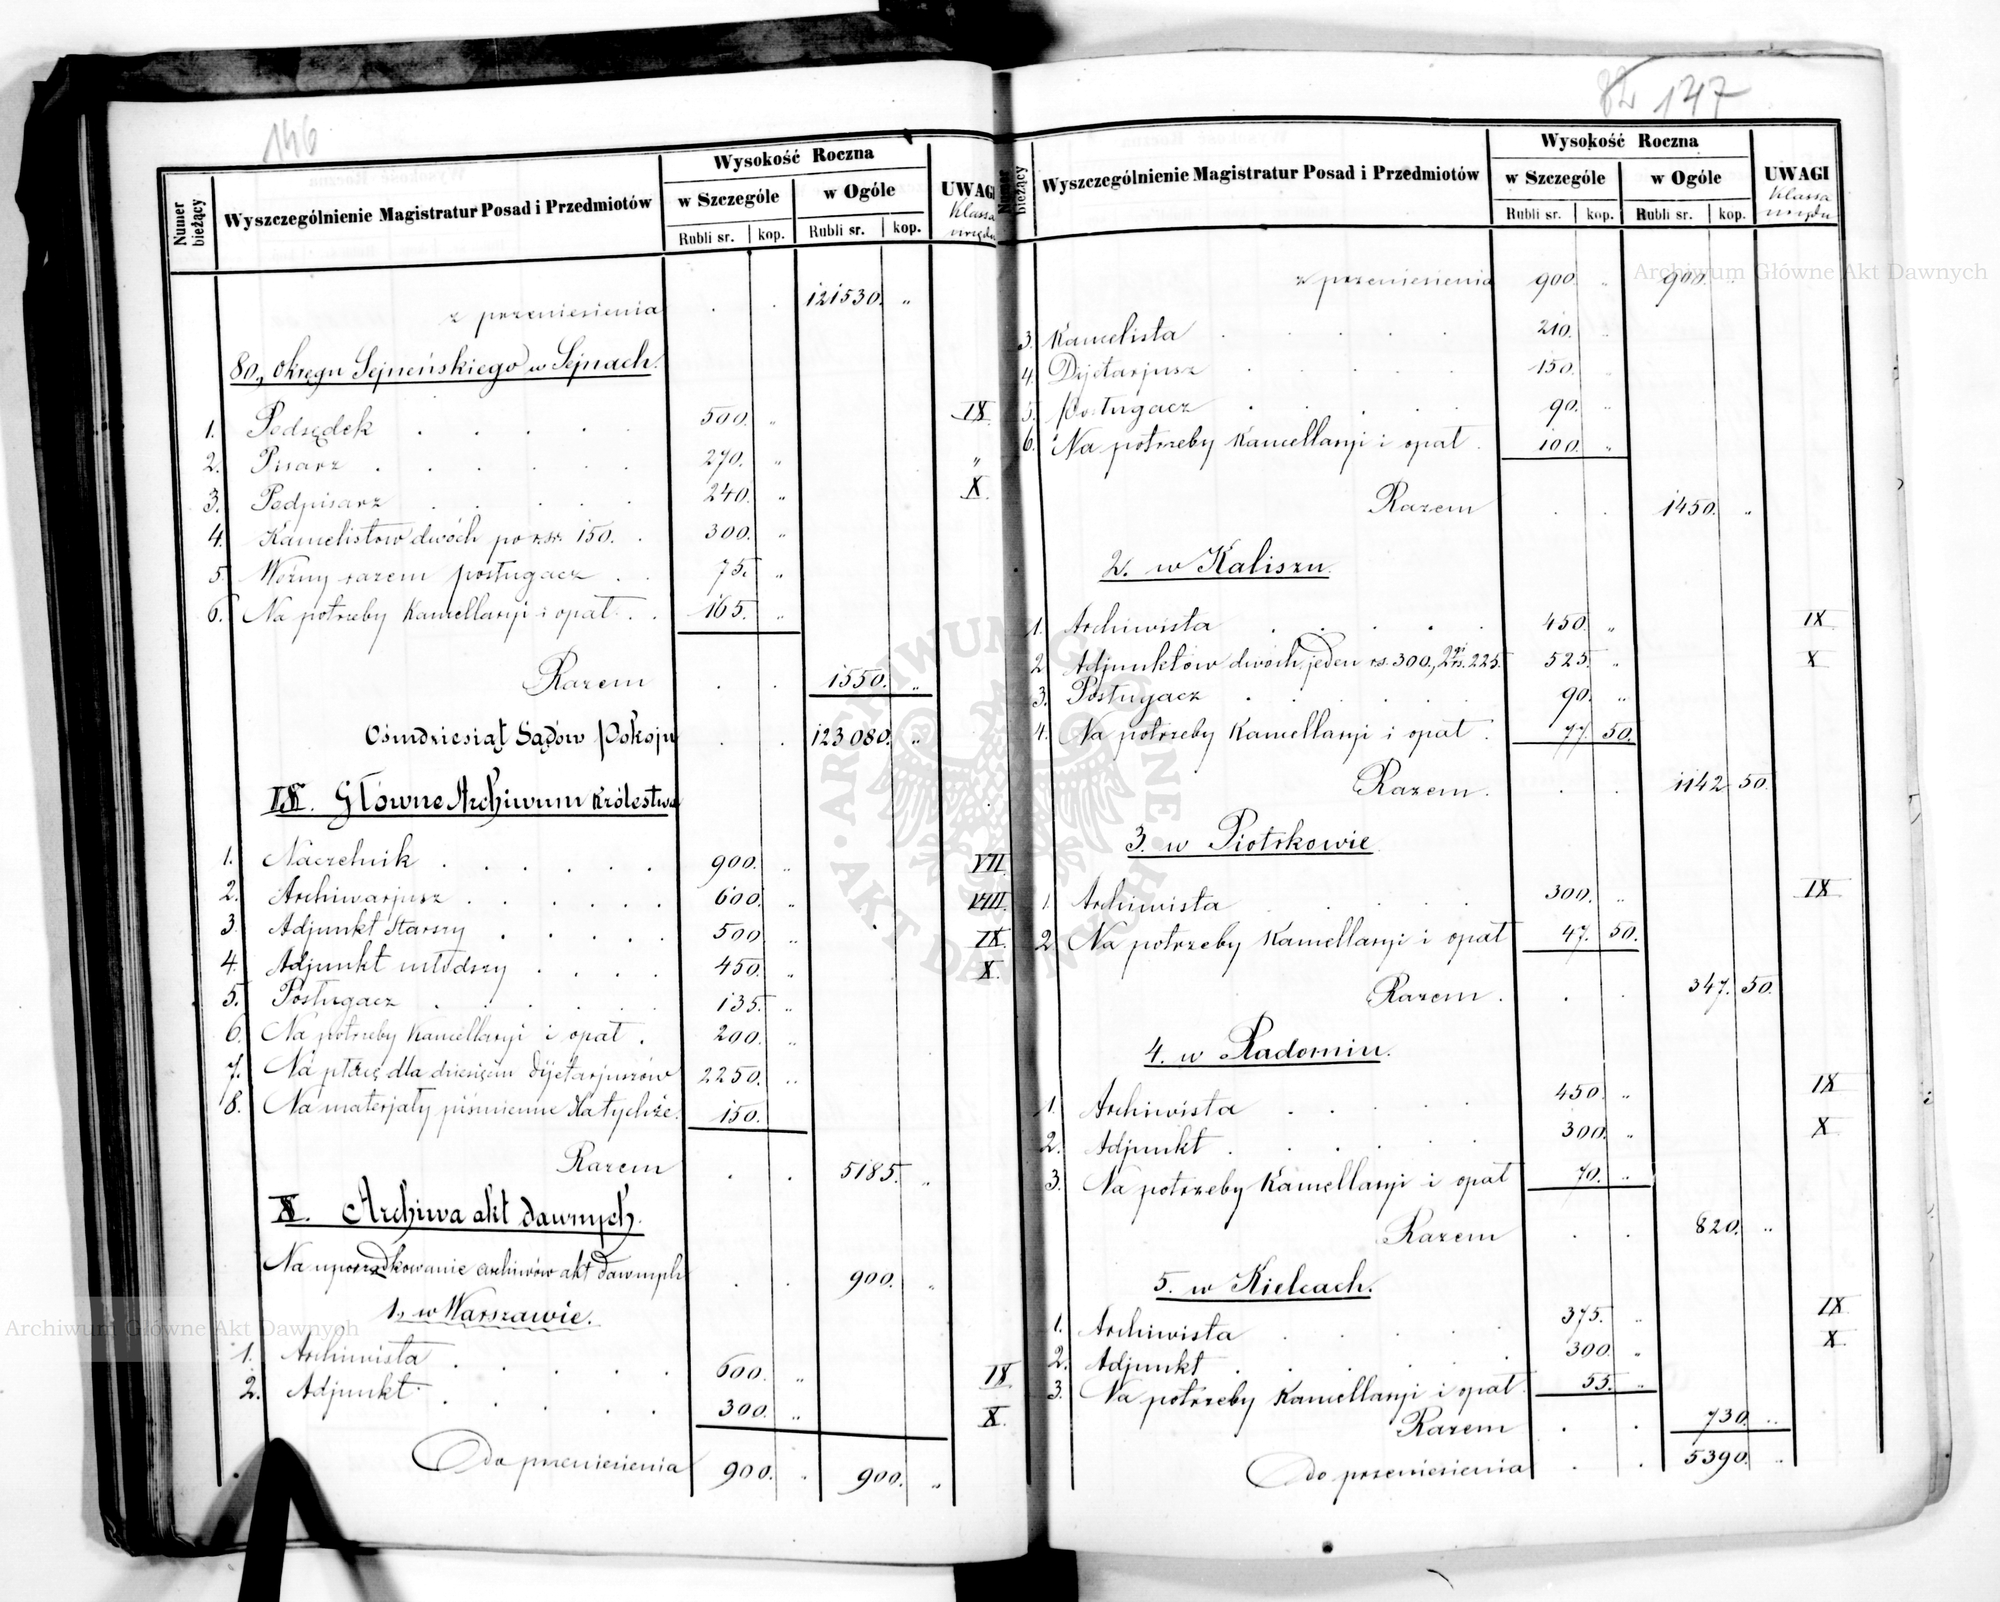 146
Numer bieżący
Wyszczególnienie Magistratur Posad i Przedmiotów
Wysokość Roczna
w Szczególe
w Ogóle
Rubli sr. kop. Rubli sr. kop.
UWAGI
Klassa urzędu
z przeniesienia . . 121530. „
80, Okręgu Sejneńskiego w Sejnach.
1. Podsędek . . . . . 500. „ IX
2. Pisarz . . . . . 270. „ „
3. Podpisarz . . . . 240. „ X.
4. Kancelistów dwóch po rsr. 150. . 300. „
5. Woźny razem posługacz . . 75. „
6. Na potrzeby Kancellaryi i opał . . 165. „
Razem . . 1550. „
Ośmdziesiąt Sądów Pokoju . . 123080. „
IX. Główne Archiwum Królestwa
1. Naczelnik . . . . . 900. „ VII.
2. Archiwarjusz . . . . . . 600. „ VIII.
3. Adjunkt Starszy . . . . . 500 „ IX.
4. Adjunkt młodszy . . . . 450. „ X.
5. Posługacz . . . . . 135. „
6. Na potrzeby Kancellaryi i opał . 200. „
7. Na płacę dla dziesięciu Dijetarjuszów 2250. „
8. Na materjały piśmienne dla tychże. 150.
Razem . . 5185. „
X. Archiwa akt dawnych.
Na uporządkowanie archiwów akt dawnych . . 900. „
1, w Warszawie.
1. Archiwista . . . . . 600. „ IX
2. Adjunkt . . . . . 300. „ X.
Do przeniesienia 900. . 900. „
82 147
Numer bieżący
Wyszczególnienie Magistratur Posad i Przedmiotów
Wysokość Roczna
w Szczególe
w Ogóle
Rubli sr. kop. Rubli sr. kop.
UWAGI
Klassa urzędu
z przeniesienia 900. „ 900. „
3. Kancelista . . . . . 210. „
4. Dijetarjusz . . . . 150. „
5. Posługacz . . . . . 90. „
6. Na potrzeby Kancellaryi i opał . 100. „
Razem . . 1450. „
2. w Kaliszu.
1. Archiwista . . . . . 450. „ IX
2 Adjunktów dwóch, jeden rs. 300, 2gi rs. 225. 525. „ X
3. Posługacz . . . . . 90. „
4. Na potrzeby Kancellaryi i opał . 77. 50.
Razem. . . 1142 50.
3. w Piotrkowie
1. Archiwista . . . . 300. „ IX
2 Na potrzeby Kancellaryi i opał 47. 50.
Razem . . . 347. 50.
4. w Radomiu.
1. Archiwista . . . . 450. „ IX
2. Adjunkt . . . . . 300. „ X
3. Na potrzeby Kancellaryi i opał 70. „
Razem . . 820. „
5. w Kielcach.
1. Archiwista . . . . 375. „ IX
2. Adjunkt . . . . . 300. „ X
3. Na potrzeby Kancellaryi i opał 55. „
Razem . . 730. „
Do przeniesienia . . 5390. „
Archiwum Główne Akt Dawnych
Archiwum Główne Akt Dawnych
ARCHIWUM GŁÓWNE AKT DAWNYCH